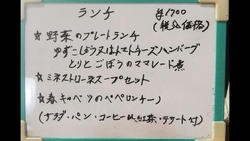 ランチ ¥1700
(税込価格)
☆ 野菜のプレートランチ
ゆずこしょう又はトマトチーズハンバーグ
とりとごぼうのママレード煮
☆ ミネストローネスープセット
☆ 春キャベツのペペロンチーノ
(サラダ・パン・コーヒー又は紅茶・デザート付)